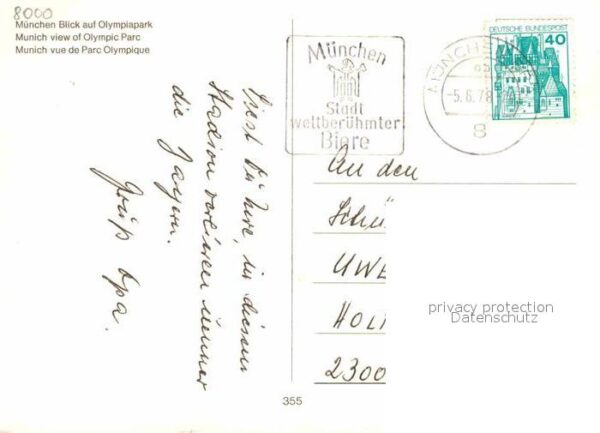 8000
München Blick auf Olympiapark
Munich view of Olympic Parc
Munich vue de Parc Olympique
München
Stadt
weltberühmter
Biere
MÜNCHEN
-5.6.78
8
DEUTSCHE BUNDESPOST
40
Siehst Du hier, in diesem
Stadion verlieren immer
die Bayern.
Gruß Opa.
An den
Schü
UWE
HOL
2300
privacy protection
Datenschutz
355